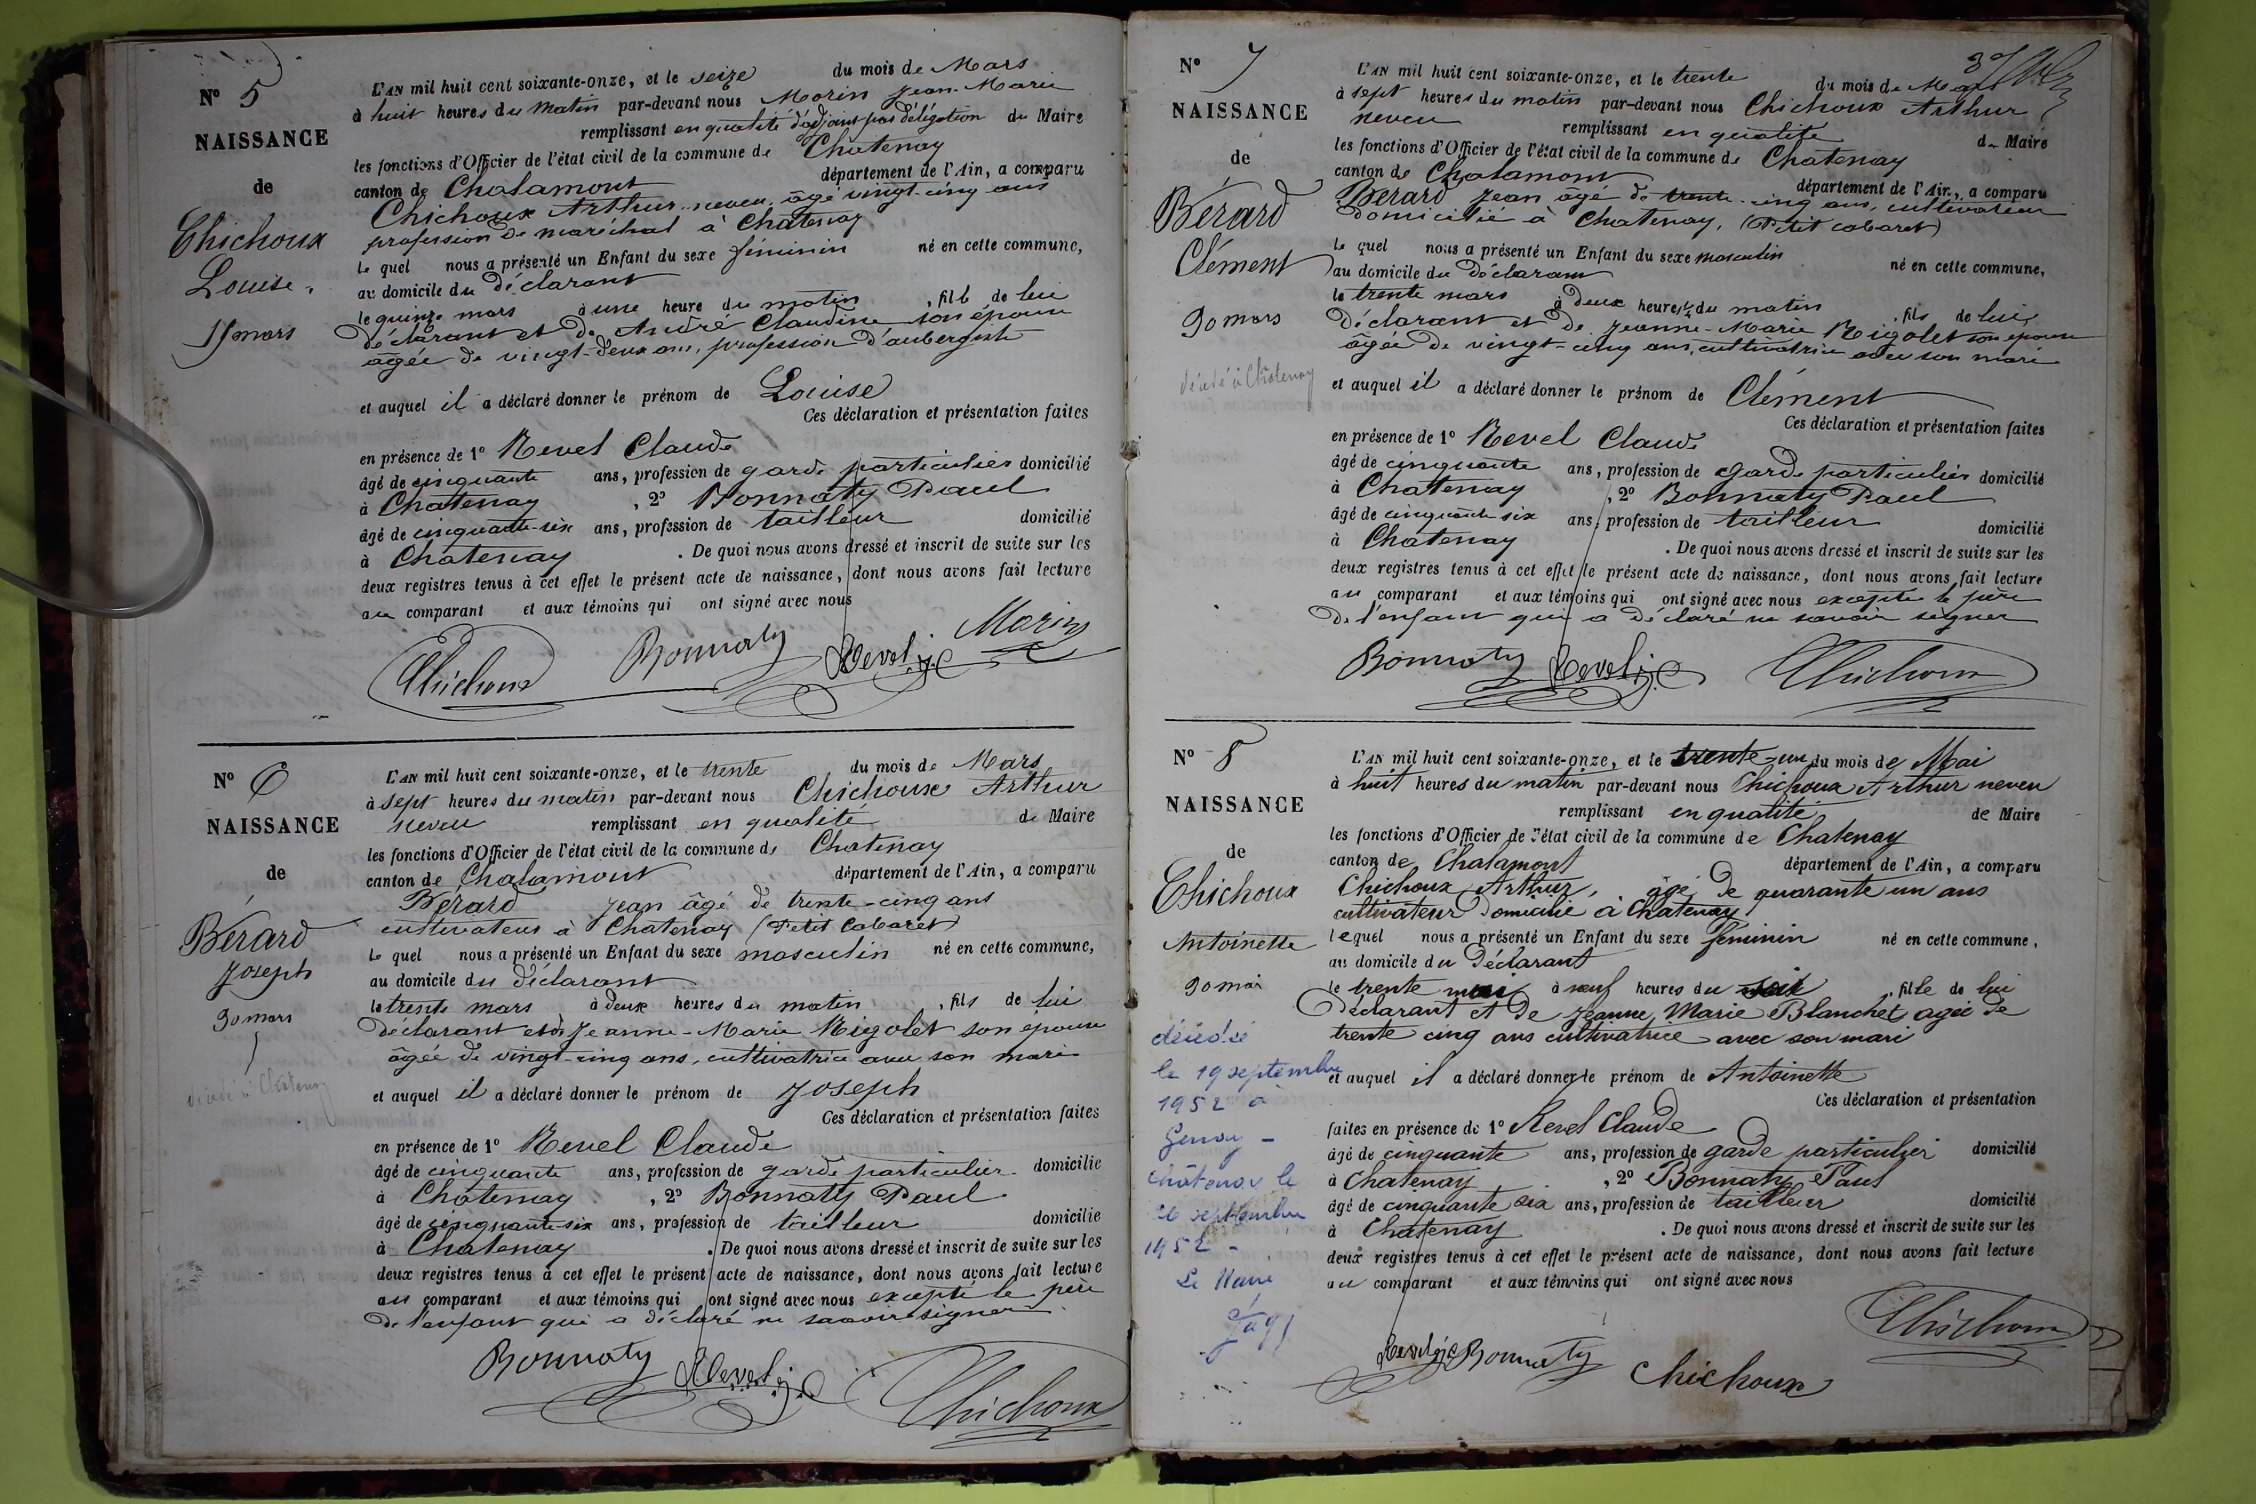 N° 5
NAISSANCE
de
Chichoux
Louise.
15 mars
L'AN mil huit cent soixante-onze, et le seize du mois de Mars
à huit heures du matin par-devant nous Morin Jean-Marie
remplissant en qualité d'adjoint par délégation du Maire
les fonctions d'Officier de l'état civil de la commune de Chatenay
canton de Chalamont département de l'Ain, a comparu
Chichoux Arthur neveu, âgé vingt-cinq ans
profession de maréchal à Chatenay
le quel nous a présenté un Enfant du sexe féminin né en cette commune,
au domicile du déclarant
le quinze mars à une heure du matin, fille de lui
déclarant et de André Claudine son épouse
âgée de vingt-deux ans, profession d'aubergiste
et auquel il a déclaré donner le prénom de Louise
Ces déclaration et présentation faites
en présence de 1° Revel Claude
âgé de cinquante ans, profession de garde particulier domicilié
à Chatenay, 2° Bonnaty Paul
âgé de cinquante-six ans, profession de tailleur domicilié
à Chatenay. De quoi nous avons dressé et inscrit de suite sur les
deux registres tenus à cet effet le présent acte de naissance, dont nous avons fait lecture
au comparant et aux témoins qui ont signé avec nous
Chichoux Bonnaty Revel Morin
N° 6
NAISSANCE
de
Bérard
Joseph
30 mars
décédé à Chatenay
L'AN mil huit cent soixante-onze, et le trente du mois de Mars
à sept heures du matin par-devant nous Chichoux Arthur
neveu remplissant en qualité de Maire
les fonctions d'Officier de l'état civil de la commune de Chatenay
canton de Chalamont département de l'Ain, a comparu
Bérard Jean âgé de trente-cinq ans
cultivateur à Chatenay (Petit Cabaret)
le quel nous a présenté un Enfant du sexe masculin né en cette commune,
au domicile du déclarant
le trente mars à deux heures du matin, fils de lui
déclarant et de Jeanne-Marie Rigolet son épouse
âgée de vingt-cinq ans, cultivatrice avec son mari
et auquel il a déclaré donner le prénom de Joseph
Ces déclaration et présentation faites
en présence de 1° Revel Claude
âgé de cinquante ans, profession de garde particulier domicilié
à Chatenay, 2° Bonnaty Paul
âgé de cinquante-six ans, profession de tailleur domicilié
à Chatenay. De quoi nous avons dressé et inscrit de suite sur les
deux registres tenus à cet effet le présent acte de naissance, dont nous avons fait lecture
au comparant et aux témoins qui ont signé avec nous excepté le père
de l'enfant qui a déclaré ne savoir signer
Bonnaty Revel Chichoux
N° 7
NAISSANCE
de
Bérard
Clément
30 mars
décédé à Chatenay
L'AN mil huit cent soixante-onze, et le trente du mois de Mars
à sept heures du matin par-devant nous Chichoux Arthur
neveu remplissant en qualité de Maire
les fonctions d'Officier de l'état civil de la commune de Chatenay
canton de Chalamont département de l'Ain, a comparu
Bérard Jean âgé de trente-cinq ans, cultivateur
domicilié à Chatenay, (Petit cabaret)
le quel nous a présenté un Enfant du sexe masculin né en cette commune,
au domicile du déclarant
le trente mars à deux heures ½ du matin, fils de lui
déclarant et de Jeanne-Marie Rigolet son épouse
âgée de vingt-cinq ans, cultivatrice avec son mari
et auquel il a déclaré donner le prénom de Clément
Ces déclaration et présentation faites
en présence de 1° Revel Claude
âgé de cinquante ans, profession de garde particulier domicilié
à Chatenay, 2° Bonnaty Paul
âgé de cinquante six ans, profession de tailleur domicilié
à Chatenay. De quoi nous avons dressé et inscrit de suite sur les
deux registres tenus à cet effet le présent acte de naissance, dont nous avons fait lecture
au comparant et aux témoins qui ont signé avec nous excepté le père
de l'enfant qui a déclaré ne savoir signer
Bonnaty Revel Chichoux
N° 8
NAISSANCE
de
Chichoux
Antoinette
30 mai
décédée
le 19 septembre
1952 à
Genay -
Châtenay le
26 septembre
1952 -
Le Maire
L'AN mil huit cent soixante-onze, et le trente-un du mois de Mai
à huit heures du matin par-devant nous Chichoux Arthur neveu
remplissant en qualité de Maire
les fonctions d'Officier de l'état civil de la commune de Chatenay
canton de Chalamont département de l'Ain, a comparu
Chichoux Arthur, âgé de quarante un ans
cultivateur domicilié à Chatenay
lequel nous a présenté un Enfant du sexe féminin né en cette commune,
au domicile du déclarant
le trente mai à neuf heures du soir, fille de lui
déclarant et de Jeanne Marie Blanchet agée de
trente cinq ans cultivatrice avec son mari
et auquel il a déclaré donner le prénom de Antoinette
Ces déclaration et présentation
faites en présence de 1° Revel Claude
âgé de cinquante ans, profession de garde particulier domicilié
à Chatenay, 2° Bonnaty Paul
âgé de cinquante six ans, profession de tailleur domicilié
à Chatenay. De quoi nous avons dressé et inscrit de suite sur les
deux registres tenus à cet effet le présent acte de naissance, dont nous avons fait lecture
au comparant et aux témoins qui ont signé avec nous
Chichoux
Revel Bonnaty Chichoux